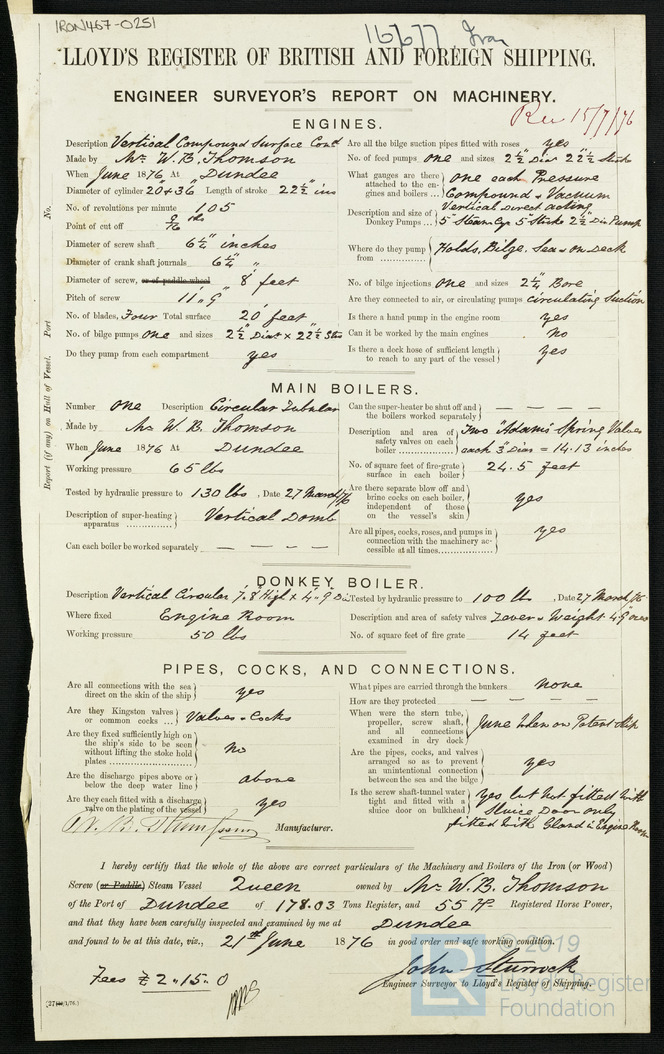 IRON467-0251
16677 Iron
LLOYD'S REGISTER OF BRITISH AND FOREIGN SHIPPING.
ENGINEER SURVEYOR'S REPORT ON MACHINERY.
Rec 15/7/76
No.
Port
Report (if any) on Hull of Vessel.
ENGINES.
Description Vertical Compound Surface Cond
Made by Mr. W. B. Thomson
When June 1876 At Dundee
Diameter of cylinder 20" & 36" Length of stroke 22½ ins
No. of revolutions per minute 105
Point of cut off
Diameter of screw shaft 6¼ inches
Diameter of crank shaft journals 6¼ "
Diameter of screw, or of paddle wheel 8 feet
Pitch of screw 11' 9"
No. of blades, Four Total surface 20 feet
No. of bilge pumps one and sizes 2½" Dia × 22½" Stro
Do they pump from each compartment yes
Are all the bilge suction pipes fitted with roses yes
No. of feed pumps one and sizes 2½" Dia 22½ Stroke
What gauges are there attached to the engines and boilers ... one each Pressure
Compound & Vacuum
Description and size of Donkey Pumps ... Vertical direct acting
5" Steam Cyr 5" Stroke 2½" Dia Pump
Where do they pump from ............ Holds, Bilge, Sea & on Deck
No. of bilge injections one and sizes 2¼" Bore
Are they connected to air, or circulating pumps circulating Suction
Is there a hand pump in the engine room yes
Can it be worked by the main engines No
Is there a deck hose of sufficient length to reach to any part of the vessel yes
MAIN BOILERS.
Number one Description Circular Tubular
Made by Mr W. B. Thomson
When June 1876 At Dundee
Working pressure 65 lbs
Tested by hydraulic pressure to 130 lbs, Date 27 March/76
Description of super-heating apparatus ............ Vertical Domb
Can each boiler be worked separately — — — —
Can the super-heater be shut off and the boilers worked separately — — — —
Description and area of safety valves on each boiler ............ Two "Adams" Spring Valves
each 3" Dia = 14.13 inches
No. of square feet of fire-grate surface in each boiler 24.5 feet
Are there separate blow off and brine cocks on each boiler, independent of those on the vessel's skin yes
Are all pipes, cocks, roses, and pumps in connection with the machinery accessible at all times......... yes
DONKEY BOILER.
Description Vertical Circular 7' 8" High × 4' 9" Dia Tested by hydraulic pressure to 100 lb, Date 27 March/76
Where fixed Engine Room Description and area of safety valves Lever & Weight
Working pressure 50 lbs No. of square feet of fire grate 14 feet
PIPES, COCKS, AND CONNECTIONS.
Are all connections with the sea direct on the skin of the ship yes
Are they Kingston valves or common cocks ... Valves & Cocks
Are they fixed sufficiently high on the ship's side to be seen without lifting the stoke hold plates ............ no
Are the discharge pipes above or below the deep water line above
Are they each fitted with a discharge valve on the plating of the vessel yes
W. B. Thompson Manufacturer.
What pipes are carried through the bunkers none
How are they protected — — — —
When were the stern tube, propeller, screw shaft, and all connections examined in dry dock June when on Patent Slip
Are the pipes, cocks, and valves arranged so as to prevent an unintentional connection between the sea and the bilge yes
Is the screw shaft-tunnel water tight and fitted with a sluice door on bulkhead yes but not fitted with
Sluice Door only
fitted with Gland in Engine Room
I hereby certify that the whole of the above are correct particulars of the Machinery and Boilers of the Iron (or Wood)
Screw (or Paddle) Steam Vessel Queen owned by Mr W. B. Thomson
of the Port of Dundee of 178.03 Tons Register, and 55 HP Registered Horse Power,
and that they have been carefully inspected and examined by me at Dundee
and found to be at this date, viz., 21st June 1876 in good order and safe working condition.
Fees £ 2 . 15 . 0
John Sturrock
Engineer Surveyor to Lloyd's Register of Shipping.
© 2019
LR Lloyd's Register Foundation